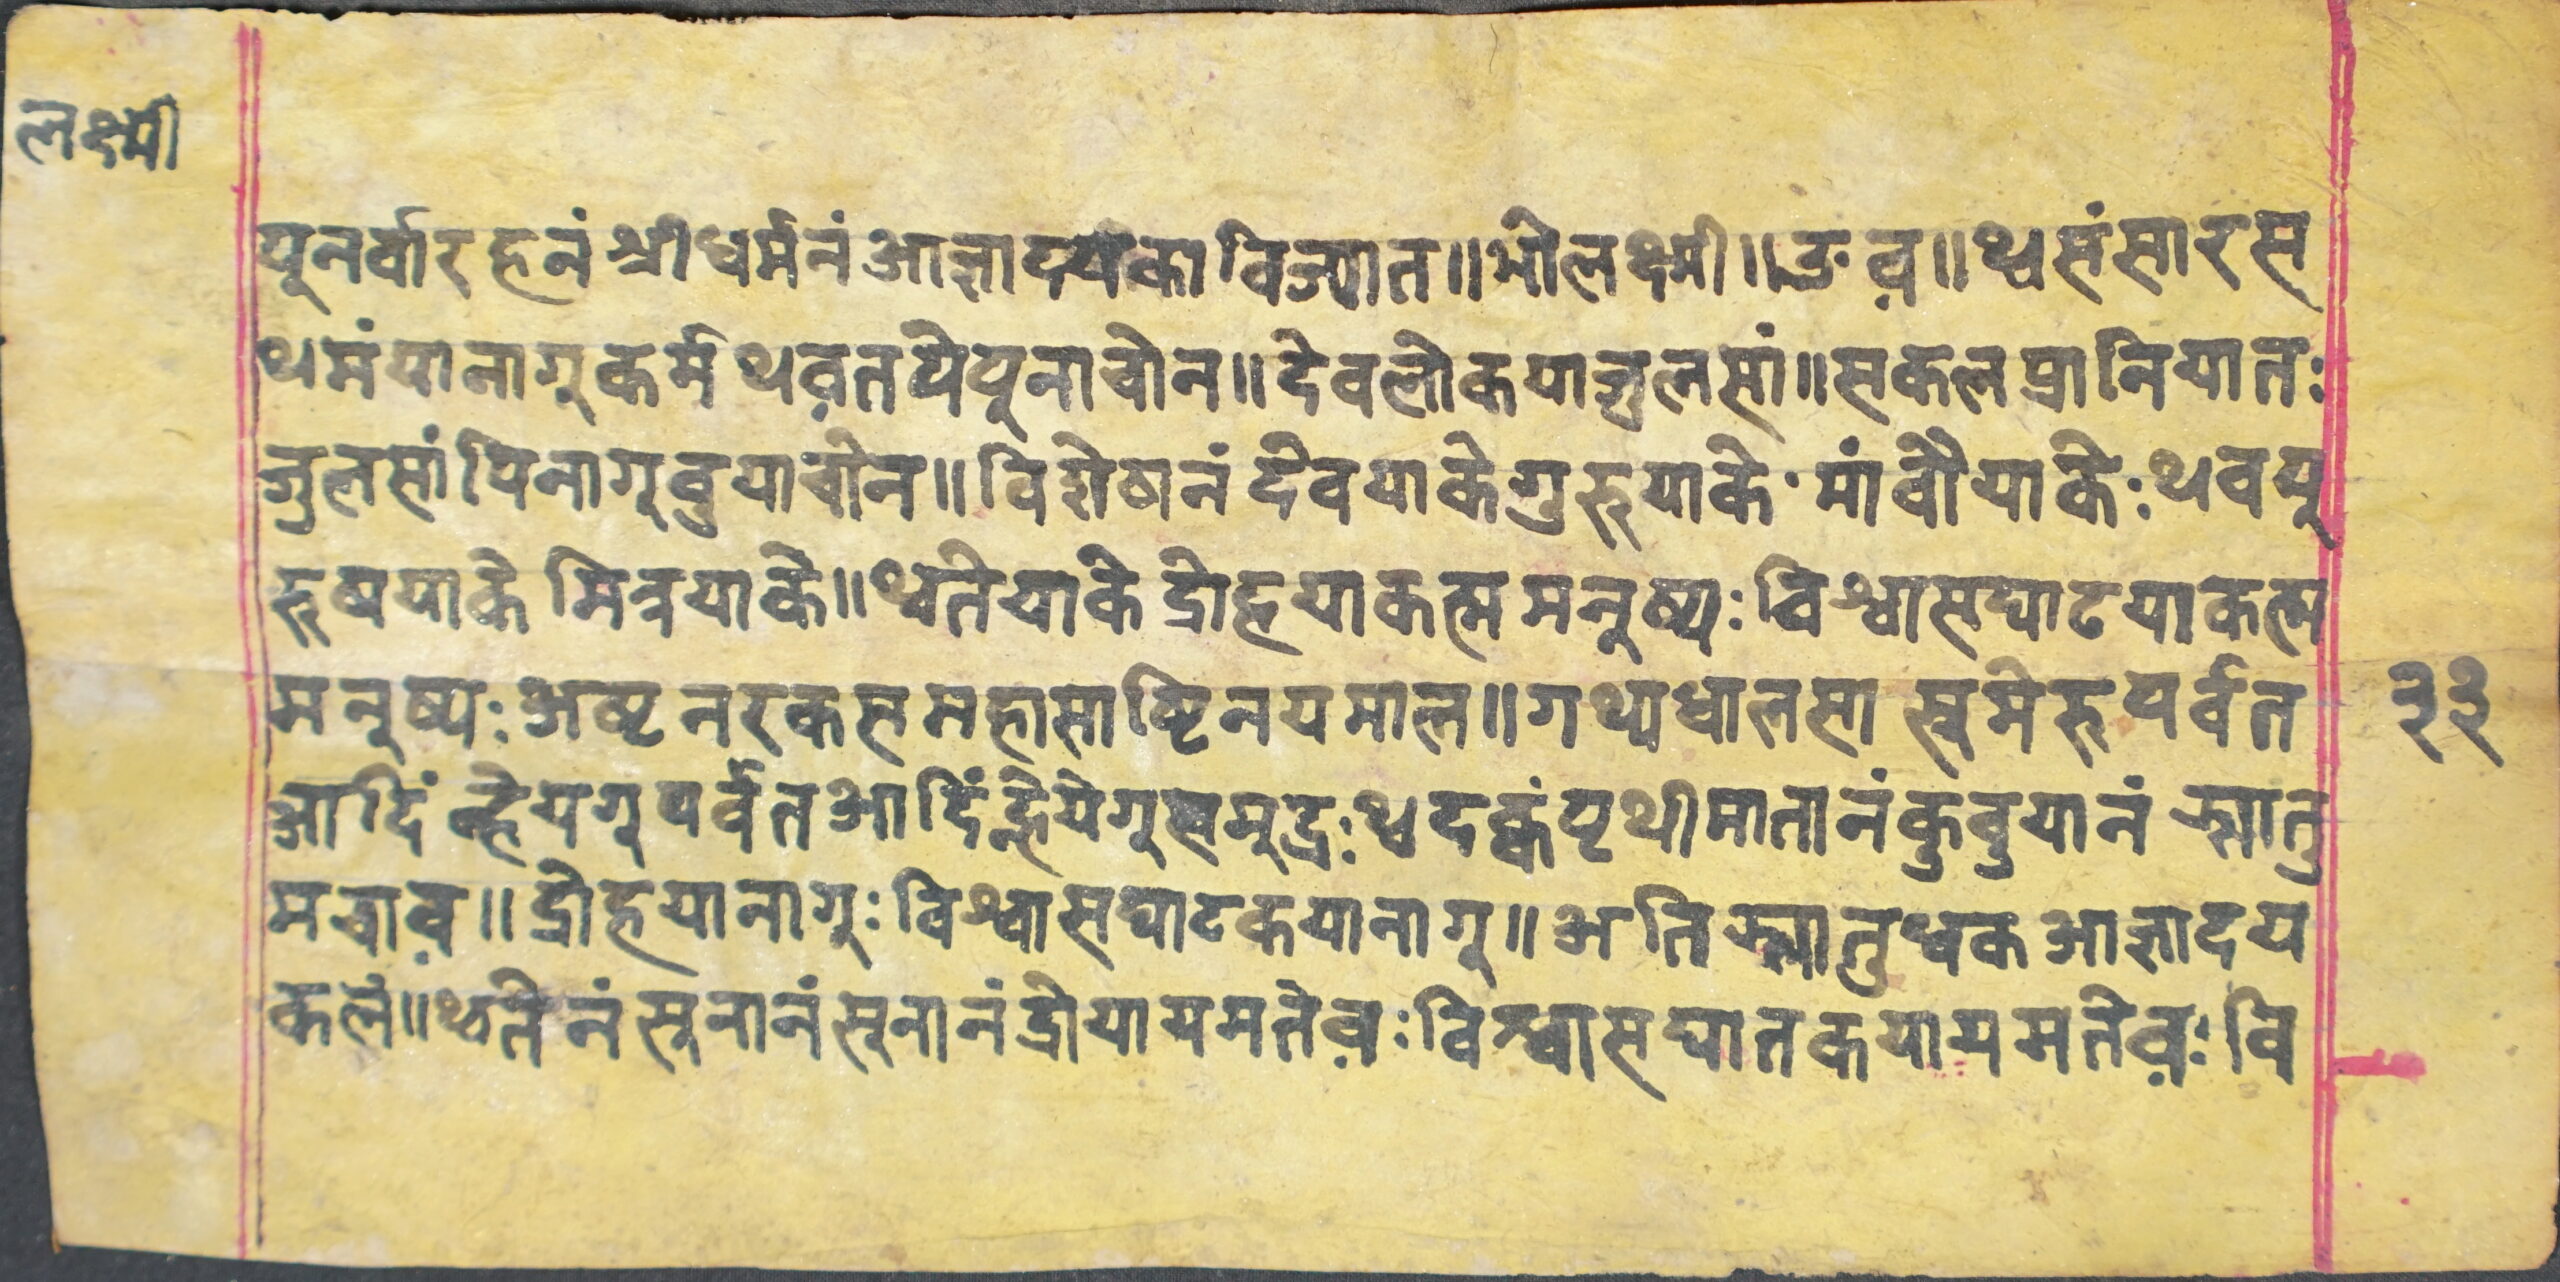 लक्ष्मी
पुनर्वार हनं श्रीधर्मनं आज्ञा दयका विज्यात॥ भो लक्ष्मी॥ ङव॥ थ्व संसारस
थमं यानागु कर्म थवत पेपुनाचोन॥ देवलोकया जुलसां॥ सकल प्रानियातः
जुलसां पिनागू वुयाचोन॥ विशेषनं देवयाके गुरुयाके· मांवौयाके: थव पू
रुषयाके मित्रयाके॥ थ्वतेयाके द्रोहयाकह्म मनुष्य: विश्वासघाटयाकह्म
मनुष्य: अष्ट नरकस महासाष्टि नयमाल॥ गथ्यधालसा सुमेरु पर्वत
आदिं न्हेयगू पर्वत आदिं न्हेयेगू समुद्र: थ्व दक्वं पृथीमातानं कुवुयानं झ्यातु
मचाव॥ द्रोहयानागू: विश्वासघाटकयानागू॥ अति झ्यातु धक आज्ञा दय
कलं॥ थ्वतेनं सुनानं सुनानं द्रोयायमतेव: विश्वासघातकयायमतेव: वि
३३